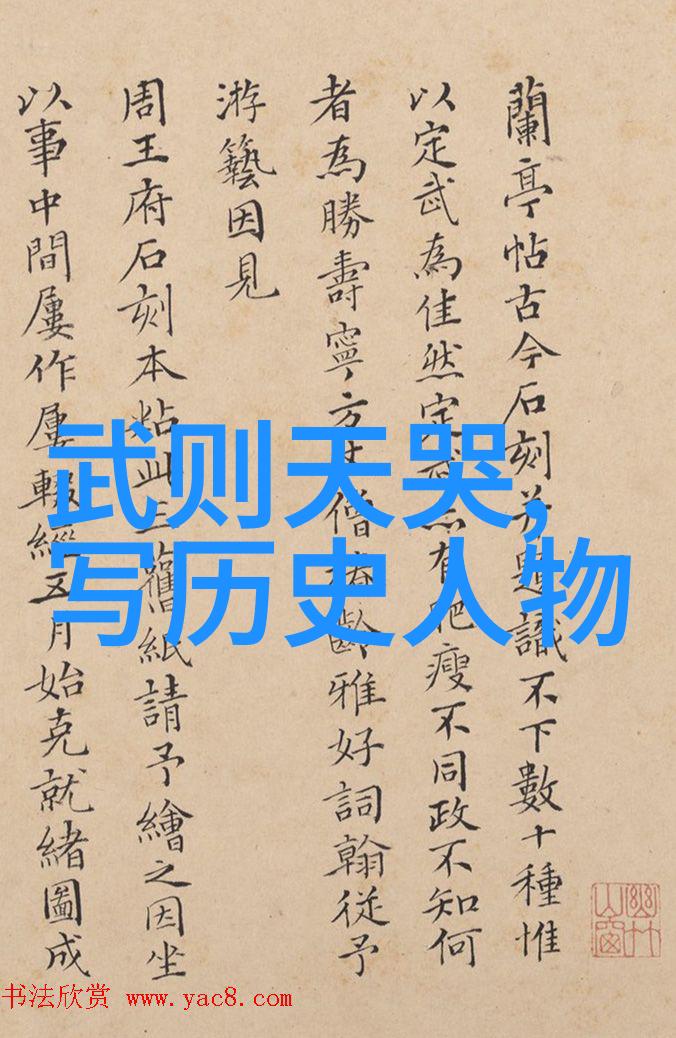 蘭亭帖古今石刻并題識不下數十種惟
以定武為佳然定武亦有肥瘦不同政不知何
者為勝壽寧方丈僧齡雅好詞翰從予
游藝因見
周王府石刻本粘此三舊紙請予繪之因坐
以事中間屢作屢輟經五月始克就緒圖成
武则天哭，
写历史人物
幽竹山窗
书法欣赏 www.yac8.com